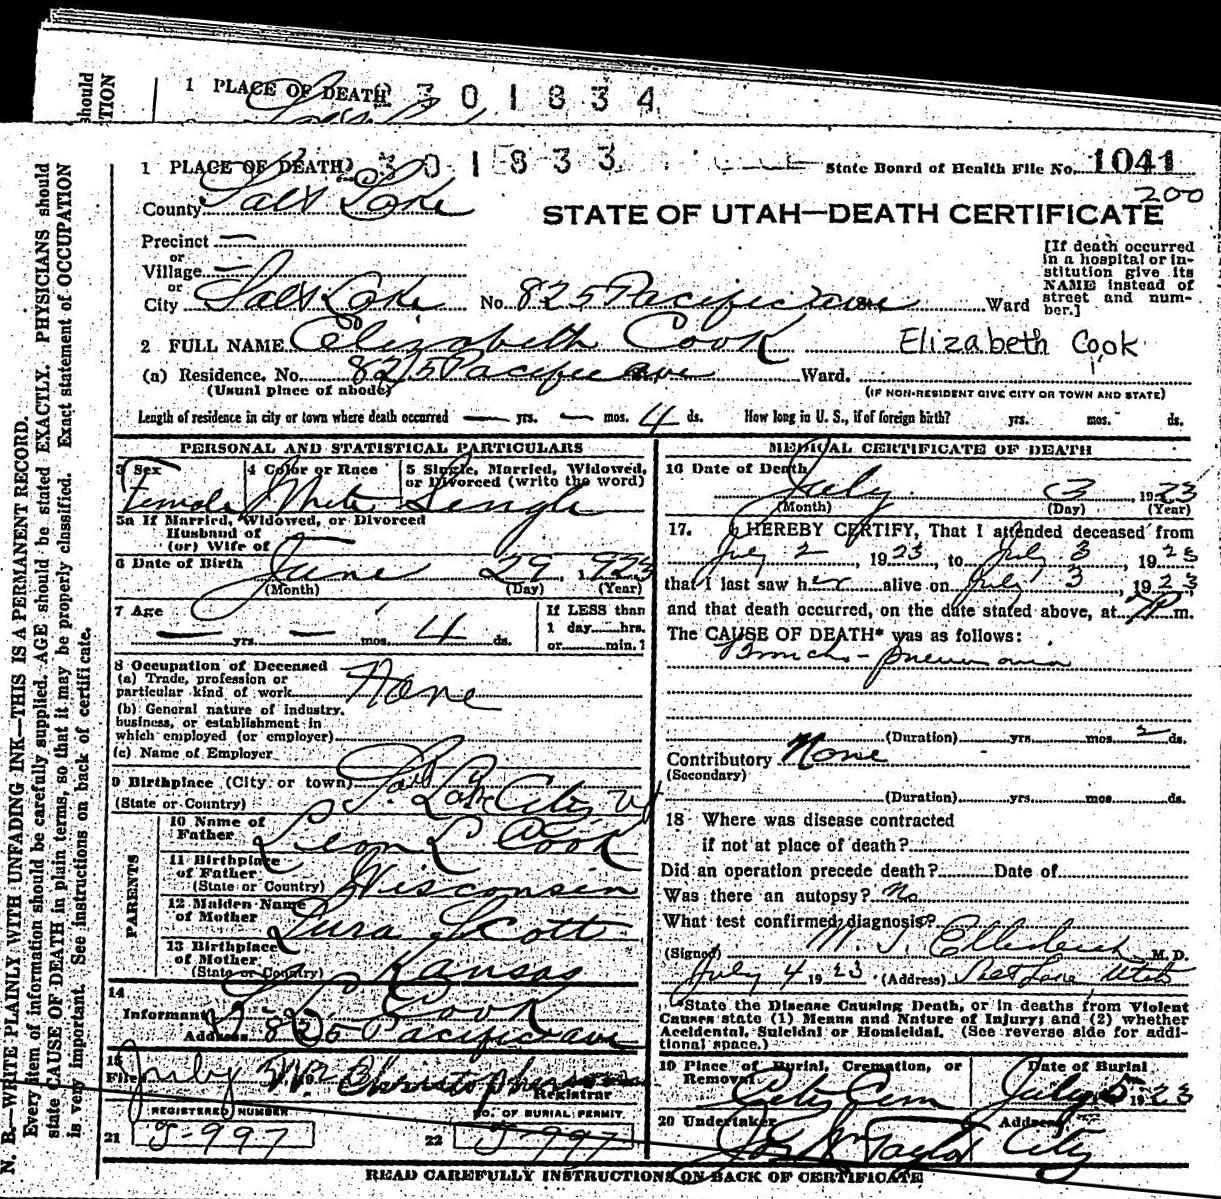 1 PLACE OF DEATH 2301834
should
TION
1 PLACE OF DEATH 2301833 State Board of Health File No. 1041
200
County Salt Lake
STATE OF UTAH—DEATH CERTIFICATE
Precinct —
or
Village —
or
City Salt Lake No. 825 Pacific ave St. Ward
[If death occurred
in a hospital or in-
stitution give its
NAME instead of
street and num-
ber.]
2 FULL NAME Elizabeth Cook Elizabeth Cook
(a) Residence. No. 825 Pacific ave Ward.
(Usual place of abode) (IF NON-RESIDENT GIVE CITY OR TOWN AND STATE)
Length of residence in city or town where death occurred — yrs. — mos. 4 ds. How long in U. S., if of foreign birth? yrs. mos. ds.
PERSONAL AND STATISTICAL PARTICULARS
3 Sex 4 Color or Race 5 Single, Married, Widowed,
or Divorced (write the word)
Female White Single
5a If Married, Widowed, or Divorced
Husband of
(or) Wife of —
6 Date of Birth June 29, 1923
(Month) (Day) (Year)
7 Age If LESS than
— yrs. — mos. 4 ds. 1 day......hrs.
or......min.?
8 Occupation of Deceased
(a) Trade, profession or
particular kind of work None
(b) General nature of industry,
business, or establishment in
which employed (or employer)
(c) Name of Employer
9 Birthplace (City or town) Salt Lake City, Ut
(State or Country)
PARENTS
10 Name of
Father Leon L Cook
11 Birthplace
of Father
(State or Country) Wisconsin
12 Maiden Name
of Mother Lura Scott
13 Birthplace
of Mother
(State or Country) Kansas
14
Informant L L Cook
Address 825 Pacific ave
15
Filed July 19 Registrar
REGISTERED NUMBER NO. OF BURIAL PERMIT
21 J-997 22 J-997
MEDICAL CERTIFICATE OF DEATH
16 Date of Death
July 3, 1923
(Month) (Day) (Year)
17. I HEREBY CERTIFY, That I attended deceased from
July 2, 1923, to July 3, 1923
that I last saw her alive on July 3, 1923
and that death occurred, on the date stated above, at m.
The CAUSE OF DEATH* was as follows:
Broncho-pneumonia
(Duration) yrs. mos. 2 ds.
Contributory None
(Secondary)
(Duration) yrs. mos. ds.
18 Where was disease contracted
if not at place of death?
Did an operation precede death? Date of
Was there an autopsy? No
What test confirmed diagnosis?
(Signed) M. D.
July 4 1923 (Address) Salt Lake, Utah
*State the Disease Causing Death, or in deaths from Violent
Causes state (1) Means and Nature of Injury; and (2) whether
Accidental, Suicidal or Homicidal. (See reverse side for addi-
tional space.)
19 Place of Burial, Cremation, or
Removal City Cem
Date of Burial
July 5 1923
20 Undertaker Address
Taylor City
READ CAREFULLY INSTRUCTIONS ON BACK OF CERTIFICATE
N. B.—WRITE PLAINLY WITH UNFADING INK—THIS IS A PERMANENT RECORD.
Every item of information should be carefully supplied. AGE should be stated EXACTLY. PHYSICIANS should
state CAUSE OF DEATH in plain terms, so that it may be properly classified. Exact statement of OCCUPATION
is very important. See instructions on back of certificate.